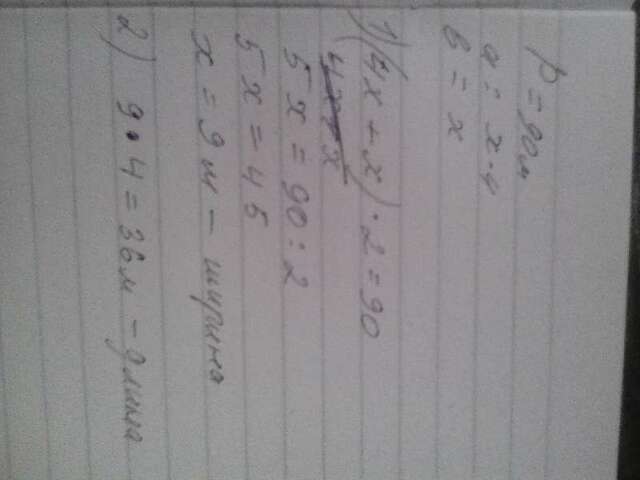 P = 90м
a = x·4
b = x
1) (4x + x)·2 = 90
4x + x
5x = 90:2
5x = 45
x = 9м – ширина
2) 9·4 = 36м – длина